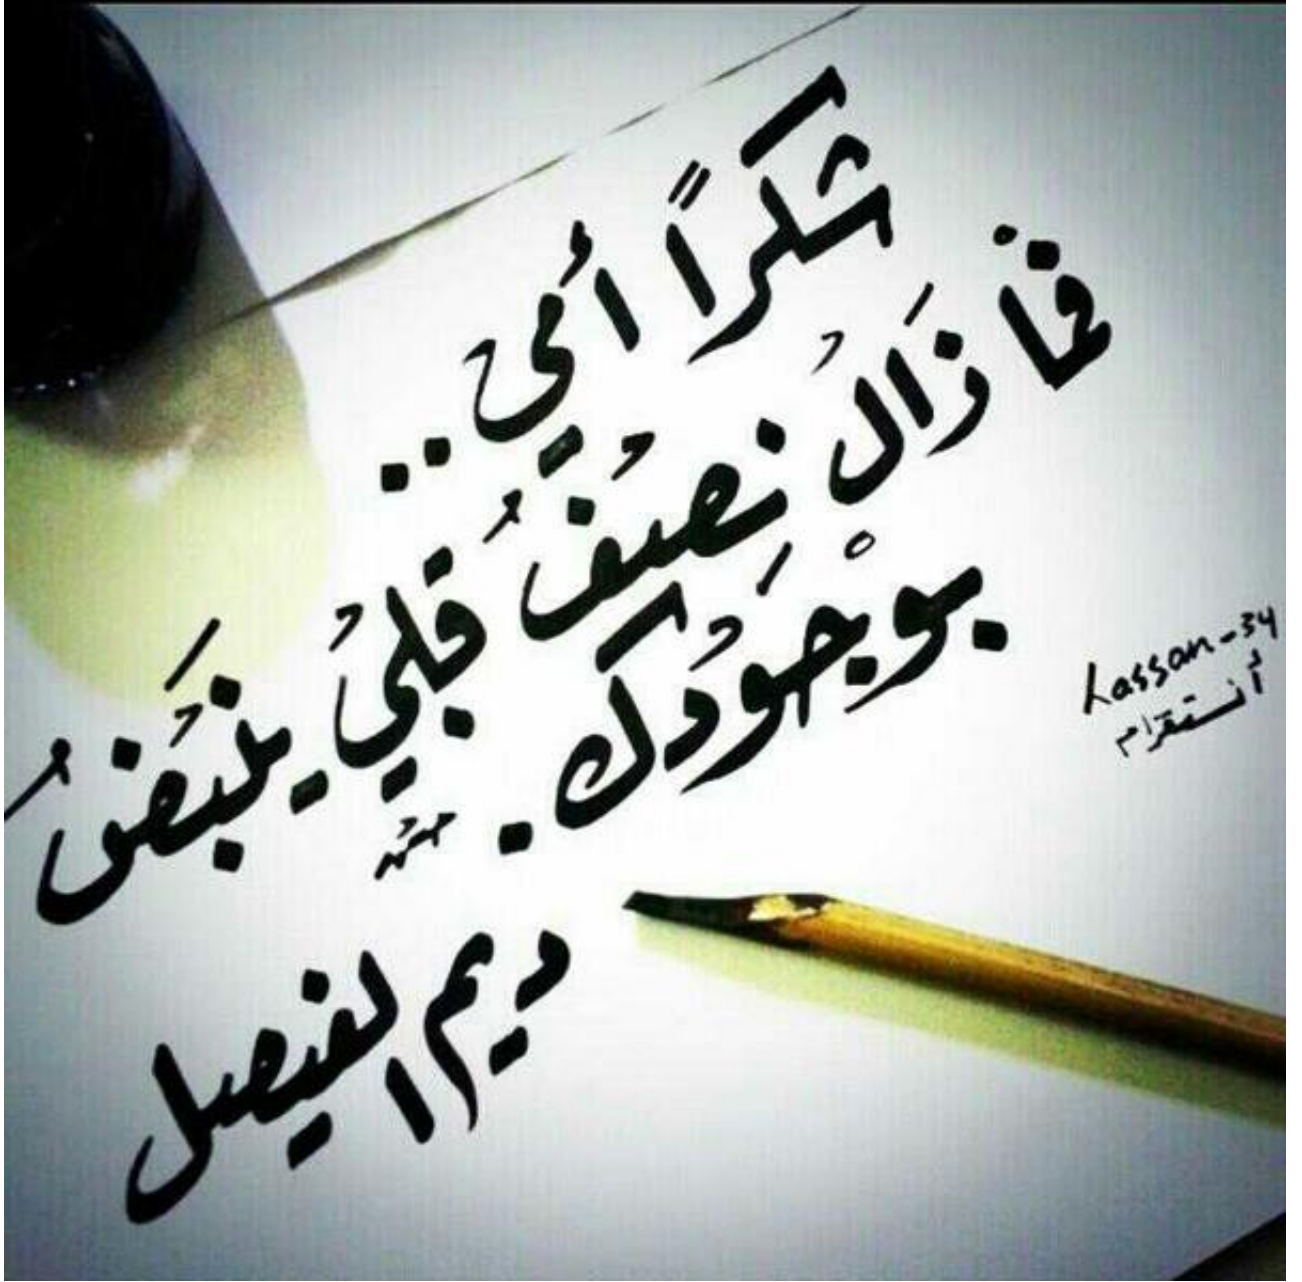 شكرًا أمي..
فما زال نصف قلبي ينبض
بوجودك.
ديم الفيصل
hassan-34
أنستقرام